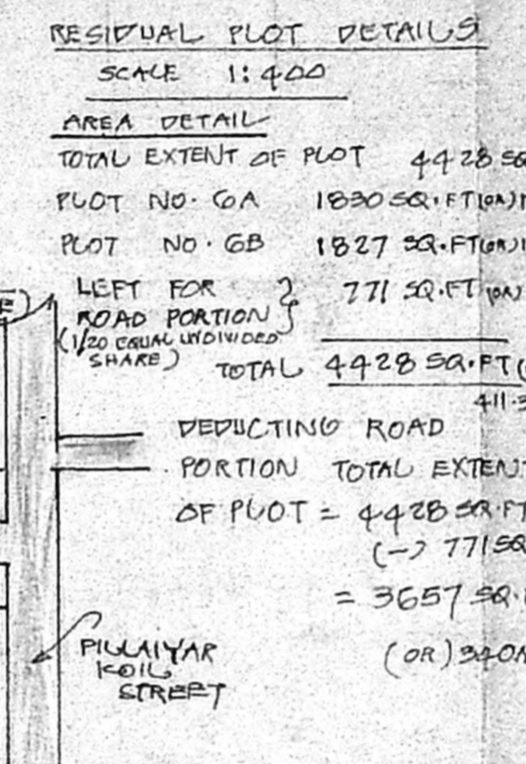 RESIDUAL PLOT DETAILS
SCALE 1:400
AREA DETAIL
TOTAL EXTENT OF PLOT 4428 SQ
PLOT NO. 6A 1830 SQ.FT (OR)
PLOT NO. 6B 1827 SQ.FT (OR)
LEFT FOR } 771 SQ.FT (OR)
ROAD PORTION
(1/20 EQUAL UNDIVIDED
SHARE)
TOTAL 4428 SQ.FT (
411.3
DEDUCTING ROAD
PORTION TOTAL EXTENT
OF PLOT = 4428 SQ.FT
(-) 771 SQ
= 3657 SQ.
(OR) 340
PILLAIYAR
KOIL
STREET